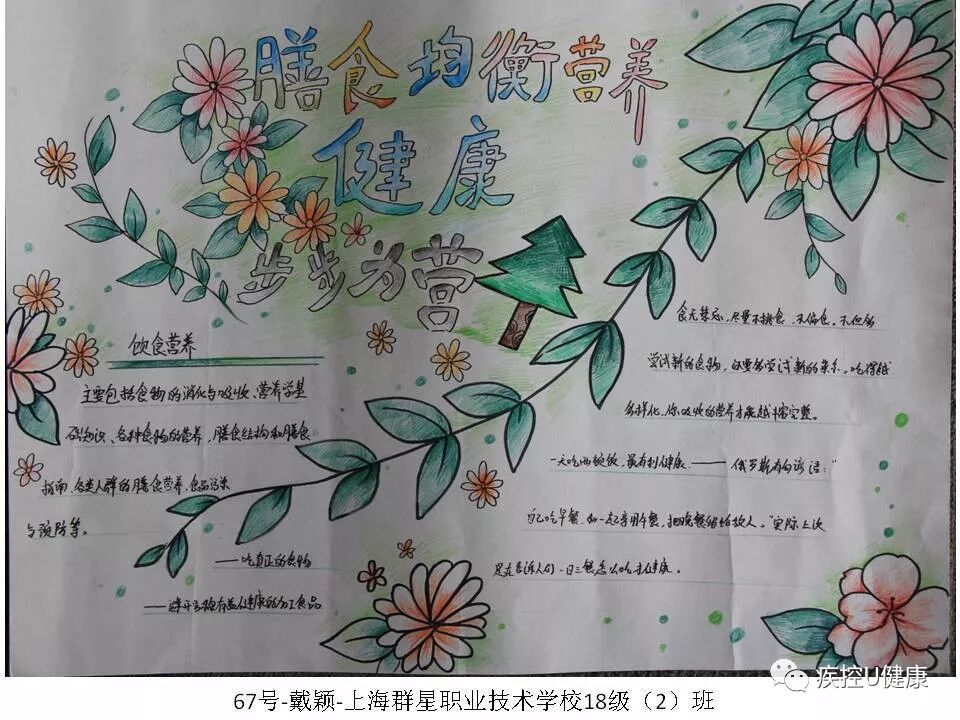 膳食均衡营养
健康
步步为营
饮食营养
主要包括食物的消化与吸收、营养学基
础知识、各种食物的营养,膳食结构和膳食
指南、各类人群的膳食营养、食品污染
与预防等。
——吃真正的食物
——避开号称有益健康的加工食品
食无禁忌,尽量不挑食,不偏食。不但多
尝试新的食物,还要多尝试新的菜系。吃得越
多样化,你吸收的营养才能越丰富完整。
一天吃两顿饭,最有利健康。——俄罗斯有句谚语:"
自己吃早餐,和一起享用午餐,把晚餐留给敌人。"实际上这
是在告诉人们一日三餐怎么吃才健康。
疾控U健康
67号-戴颖-上海群星职业技术学校18级(2)班